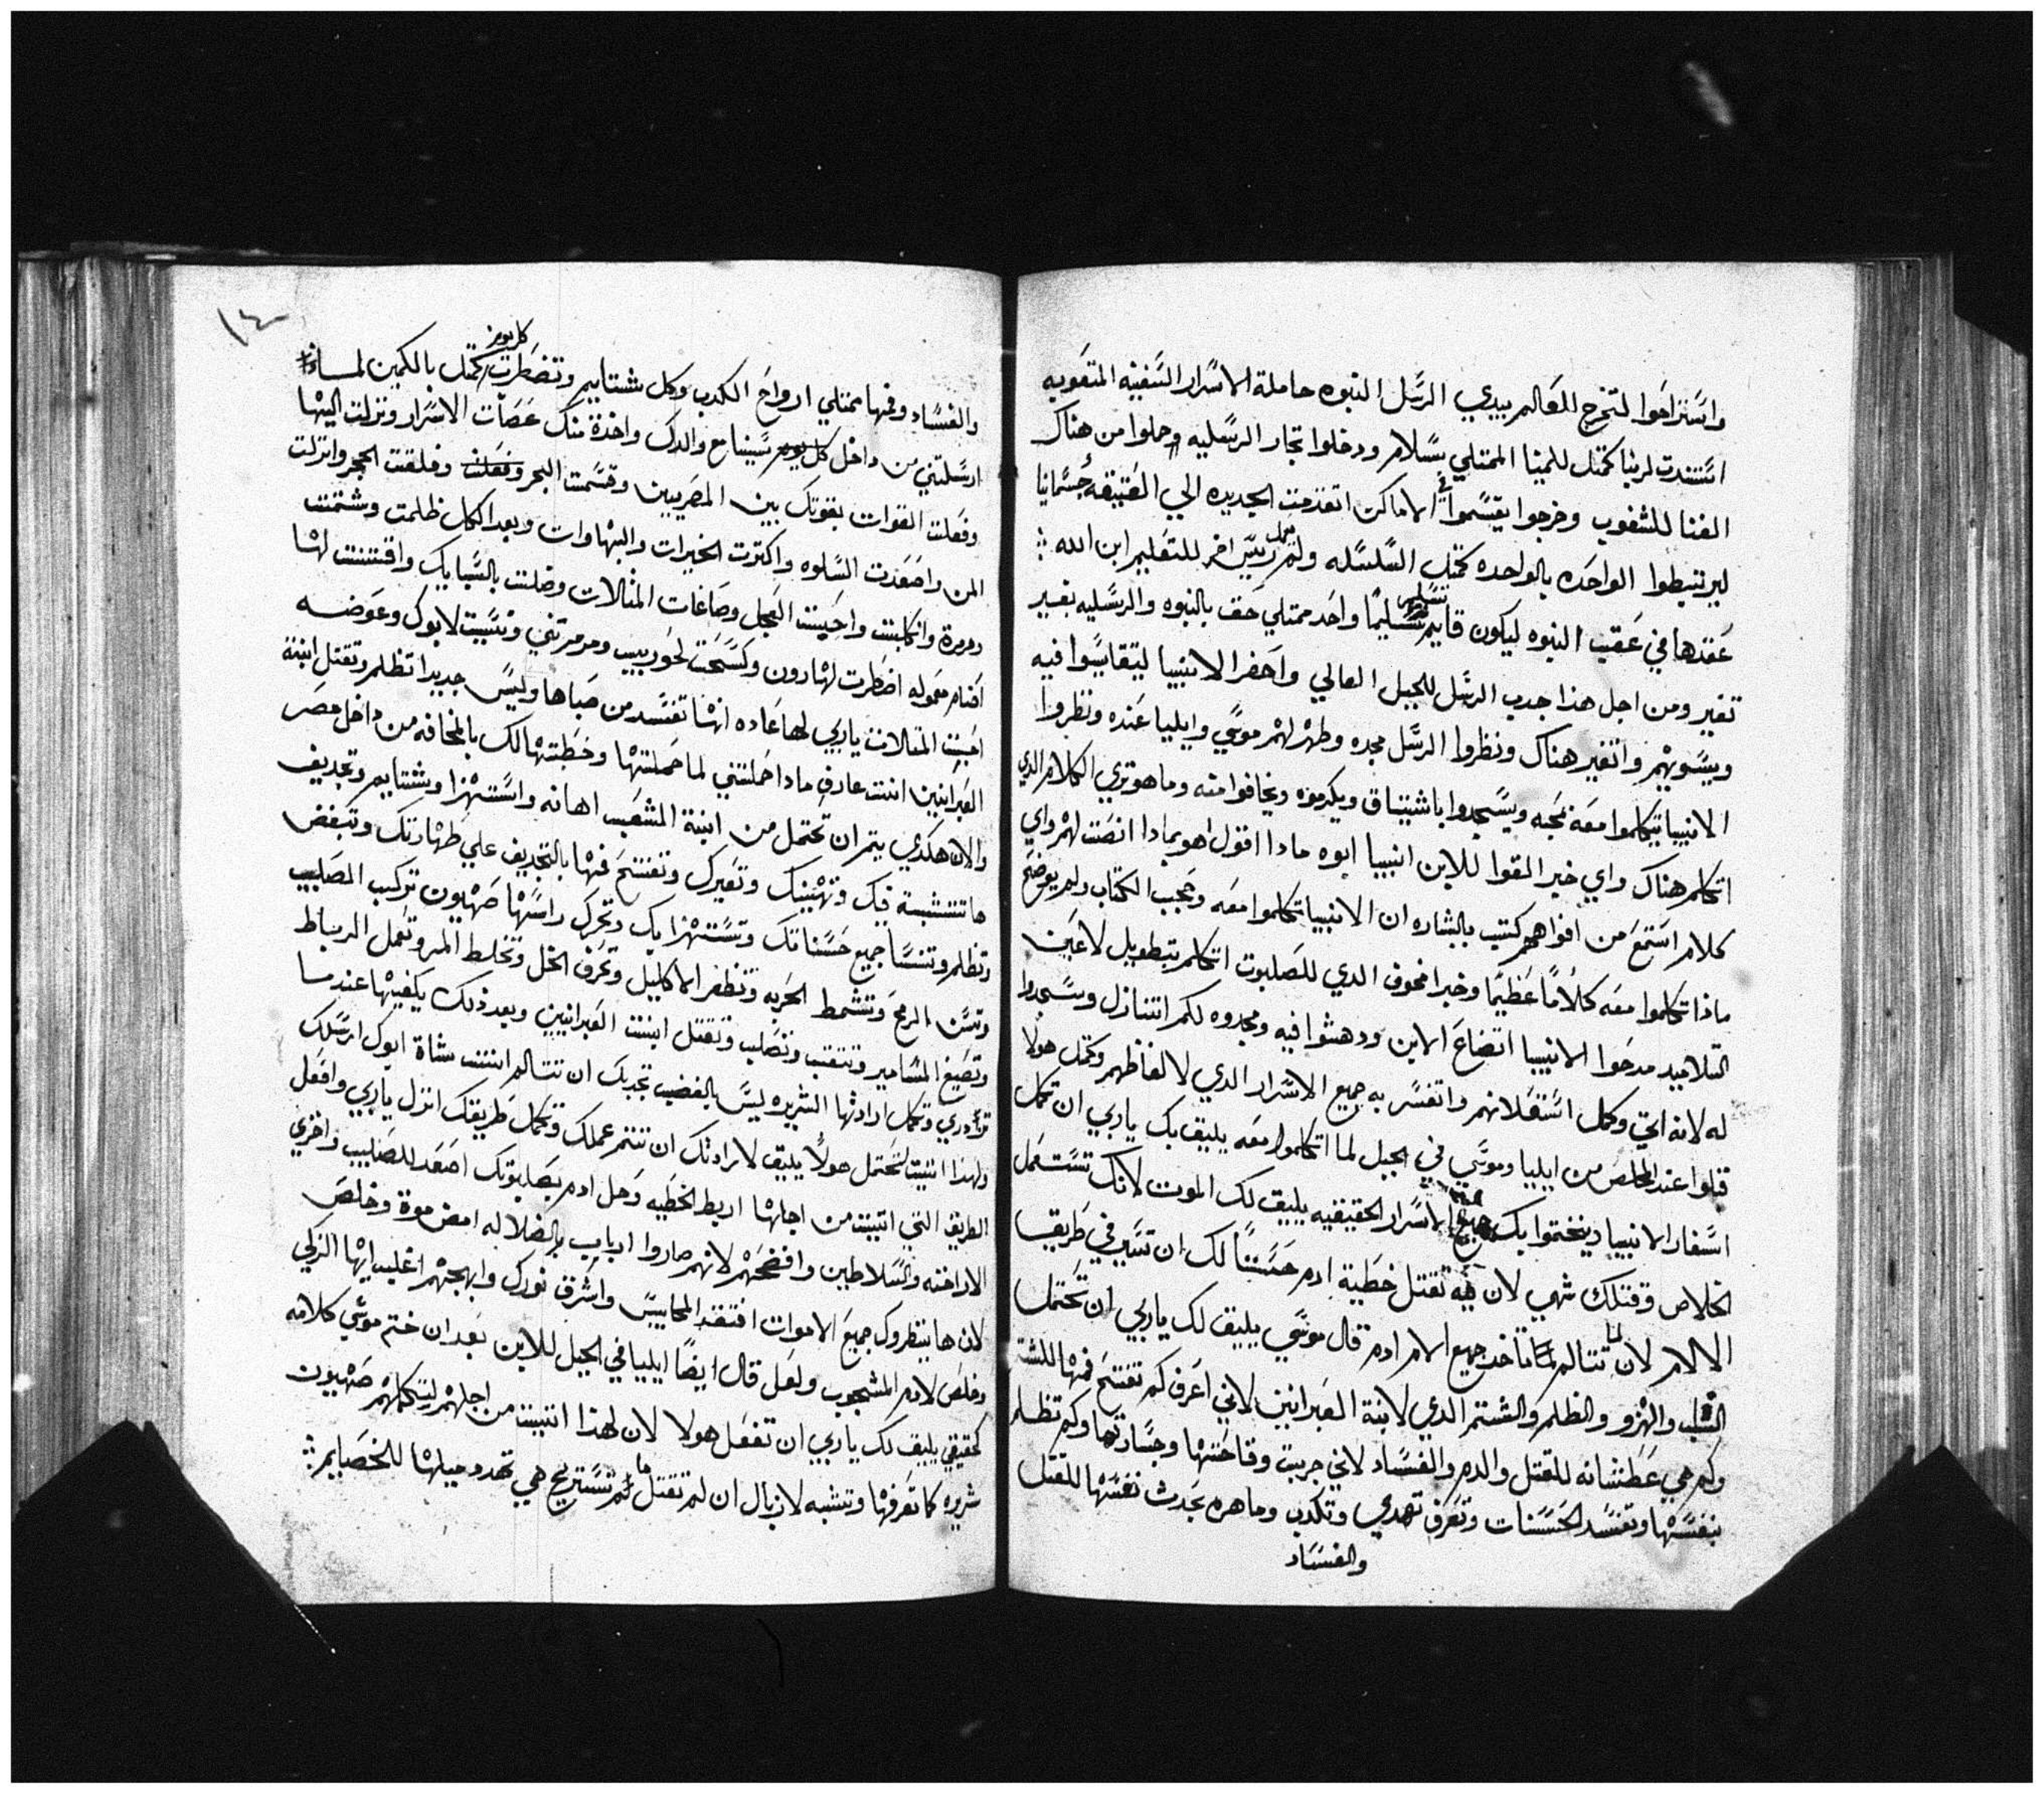 واستراحوا لتخرج للعالم بيدي الرسل النبوه حاملة الاسرار السفينه المتعوبه
استندت لربنا كمتل للمينا الممتلي سلام ودخلوا تجار الرسليه وحملوا من هناك
الغنا للشعوب وخرجوا يقسموا الاماكن اتقدمت الجديده الي العتيقه جسمانيا
ليرتبطوا الواحده بالواحده كمتل السلسله ولم ريس اخر للتعليم ابن الله
عقدها في عقيب النبوه ليكون قايم تسليم واحد ممتلي حق بالنبوه والرسليه بغير
تغير ومن اجل هذا جدب الرسل للجبل العالي واحضر الانبيا ليتقايسوا فيه
ويسويهم واتغير هناك ونظروا الرسل مجده وظهر لهم موسي وايليا عنده ونظروا
الانبيا تيكلموا معه بمحبه ويسجدوا باشتياق ويكرموه ويخافوا منه وما هو تري الكلام الدي
اتكلم هناك واي خبر القوا للابن انبيا ابوه مادا اقول اهو بمادا انصت لهم واي
كلام استمع من افواههم كتب بالبشاره ان الانبيا تكلموا معه وعجب الكتاب ولم يوضح
ماذا تكلموا معه كلاماً عظيماً وخبر مخوف الدي للصلبوت اتكلم بتطويل لاعين
التلاميد مدحوا الانبيا اتضاع الابن ودهشوا فيه ومجدوه لكم اتنازل وسجدوا
له لانه اتي وكمل استعلانهم واتفسر به جميع الاسرار الدي لالفاظهم وكمتل هولا
قبلوا عند المخلص من ايليا وموسي في الجبل لما اتكلموا معه يليق بك ياربي ان تكمل
اسفار الانبيا وينختموا بك جميع الاسرار الحقيقيه يليق لك الموت لانك تستعمل
الخلاص وقتلك شهي لان به تقتل خطية ادم حسنا لك ان تسير في طريق
الالام لان لما تتالم تاخد جميع الام ادم قال موسي يليق لك ياربي ان تحتمل
الصلب والهزو والظلم والشتم الدي لابنة العبرانيين لاني اعرف كم تفتح فمها للشتم
وكم هي عطشانه للقتل والدم والفساد لاني جربت وقاحتها وجسارتها وكم تظلم
بنفسها وتفسد الحسنات وتعرف تهدي وتكدب وماهره بحدث نفسها للقتل
والفساد
١٤
كل يوم
والفساد وفمها ممتلي ارواح الكدب وكل شتايم وتضطرب كمتل بالكمين لما
ارسلتني من داخل كل يوم سينا مع والدك واخدة منك عصاة الاسرار ونزلت اليها
وفعلت القوات بقوتك بين المصريين وقسمت البحر وفعلت وفلقت الحجر وانزلت
المن واصعدت السلوه واكترت الخيرات والبهاوات وبعد الكل ظلمت وشتمت
ومرمرة وانكلبت واحبت العجل وصاغات المتالات وضلت بالسبايك واقتنت لها
اصنام معموله اضطرت لهارون وكسحت لحوريب ومرمرتني ونسيت لابوك وعوضه
احبت المتالات ياربي لها عاده انها تفسد من صباها وليس جديد تظلم وتقتل ابنة
العبرانيين انت عارف مادا احملتني لما حملتها وخطبتها لك بالمخافه من داخل مصر
والان هكدي يتم ان تحتمل من ابنة الشعب اهانه واستهزا وشتايم وتجديف
ها تتشبة فيك وتهينك وتعيرك وتفتح فمها بالتجديف علي طهارتك وتبغض
وتظلم وتنسا جميع حسناتك وتستهزا بك وتحرك راسها صهيون تركب الصليب
وتسن الرمح وتشمط الحربه وتظفر الاكليل وتحرف الخل وتخلط المر وتعمل الرباط
وتصيغ المسامير وتتقب وتصلب وتقتل ابنت العبرانيين وبعد ذلك يكفيها عندما
تزدري وتكمل ارادتها الشريره ليس بالغضب تجدبك ان تتالم انت شاة ابوك ارسلك
ولهذا اتيت لتحتمل هولا يليق لارادتك ان تتم عملك وتكمل طريقك انزل ياربي وافعل
الطريق التي اتيت من اجلها اربط الخطيه وحل ادم بصلبوتك اصعد للصليب واخزي
الاراخنه والسلاطين وافضحهم لانهم صاروا ارباب بالضلاله امض موة وخلص
لان ها ينتظروك جميع الاموات افتقد المحابيس واشرق نورك وابهجهم اغلب ايها الزكي
وخلص لادم المشجوب ولعل قال ايضاً ايليا في الجبل للابن بعد ان ختم موسي كلامه
كحقيقي يليق لك ياربي ان تفعل هولا لان لهذا اتيت من اجلهم لتكملهم صهيون
شريره كما تعرفها وتشبه لازبال ان لم تقتل ما تستريح هي تهدد حيلها للخصايم